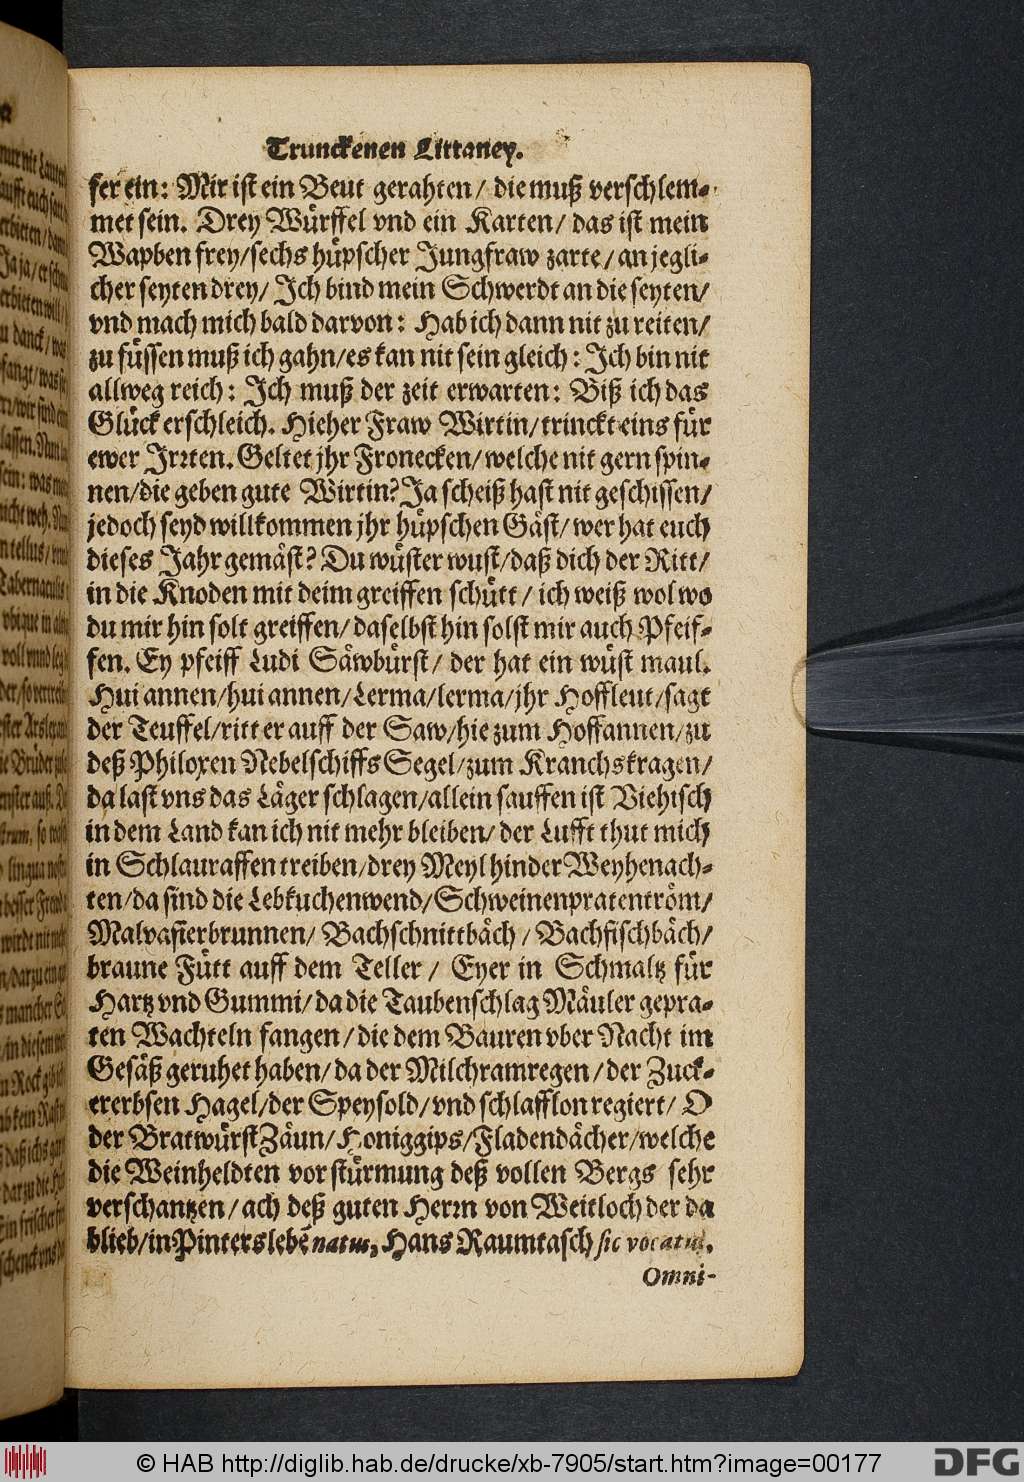 Trunckenen Littaney.
ser ein: Mir ist ein Beut gerahten/ die muß verschlem-
met sein. Drey Würffel vnd ein Karten/ das ist mein
Wapben frey/sechs hüpscher Jungfraw zarte/an jegli-
cher seyten drey/ Ich bind mein Schwerdt an die seyten/
vnd mach mich bald darvon: Hab ich dann nit zu reiten/
zu füssen muß ich gahn/es kan nit sein gleich: Ich bin nit
allweg reich: Ich muß der zeit erwarten: Biß ich das
Glück erschleich. Hieher Fraw Wirtin/trinckt eins für
ewer Jrꝛten. Geltet jhr Fronecken/ welche nit gern spin-
nen/die geben gute Wirtin? Ja scheiß hast nit geschissen/
jedoch seyd willkommen jhr hüpschen Gäst/ wer hat euch
dieses Jahr gemäst? Du wüster wust/daß dich der Ritt/
in die Knoden mit deim greiffen schütt/ ich weiß wol wo
du mir hin solt greiffen/ daselbst hin solst mir auch Pfeif-
fen. Ey pfeiff Ludi Säwbürst/ der hat ein wüst maul.
Hui annen/hui annen/Lerma/lerma/jhr Hoffleut/sagt
der Teuffel/ritt er auff der Saw/hie zum Hoffannen/zu
deß Philoxen Nebelschiffs Segel/zum Kranchskragen/
da last vns das Läger schlagen/allein sauffen ist Viehisch
in dem Land kan ich nit mehr bleiben/ der Lufft thut mich
in Schlauraffen treiben/drey Meyl hinder Weyhenach-
ten/da sind die Lebkuchenwend/Schweinenpratentröm/
Malvasierbrunnen/ Bachschnittbäch/ Bachfischbäch/
braune Fütt auff dem Teller/ Eyer in Schmaltz für
Hartz vnd Gummi/da die Taubenschlag Mäuler gepra-
ten Wachteln fangen/die dem Bauren vber Nacht im
Gesäß geruhet haben/da der Milchramregen/der Zuck-
ererbsen Hagel/der Speysold/vnd schlafflon regiert/ O
der Bratwürst Zäun/Honiggips/Fladendächer/welche
die Weinheldten vor stürmung deß vollen Bergs sehr
verschantzen/ach deß guten Herꝛn von Weitloch der da
blieb/in Pinterslebē natus, Hans Raumtasch sic vocatus.
Omni-
© HAB http://diglib.hab.de/drucke/xb-7905/start.htm?image=00177
DFG